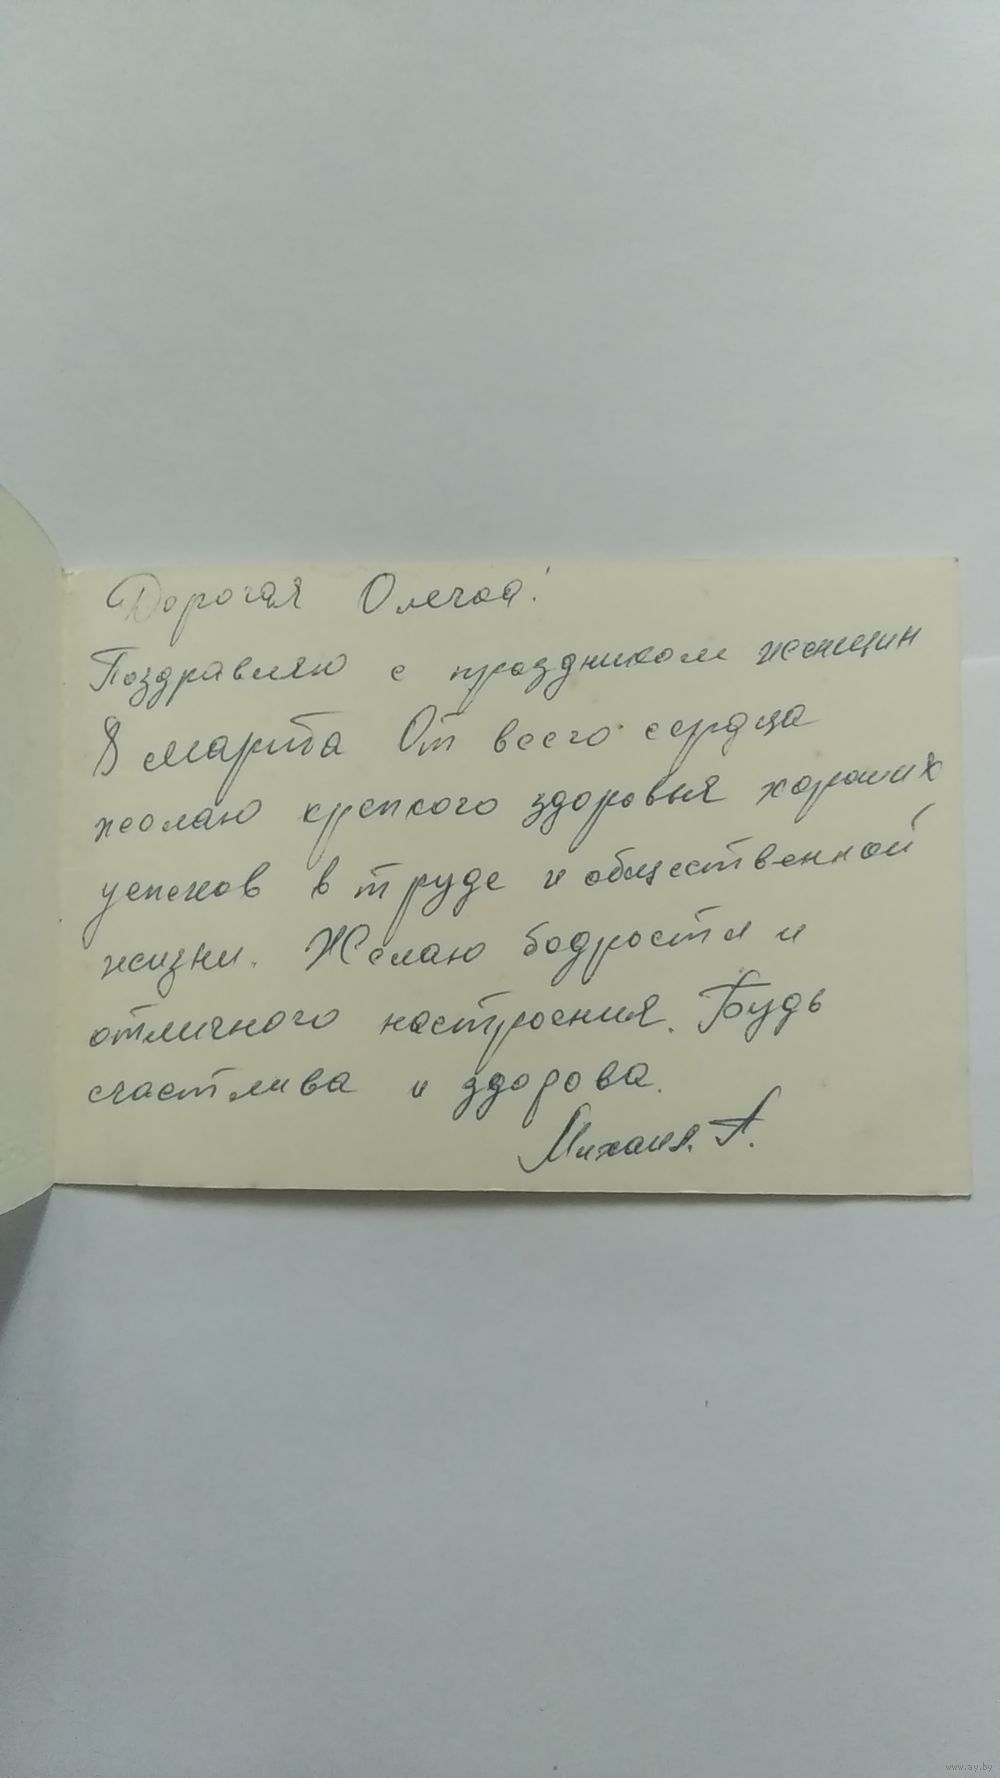 Дорогая Олечка!
Поздравляю с праздником женщин
8 марта От всего сердца
желаю крепкого здоровья хороших
успехов в труде и общественной
жизни. Желаю бодрости и
отличного настроения. Будь
счастлива и здорова.
Михаил. А.
www.ay.by